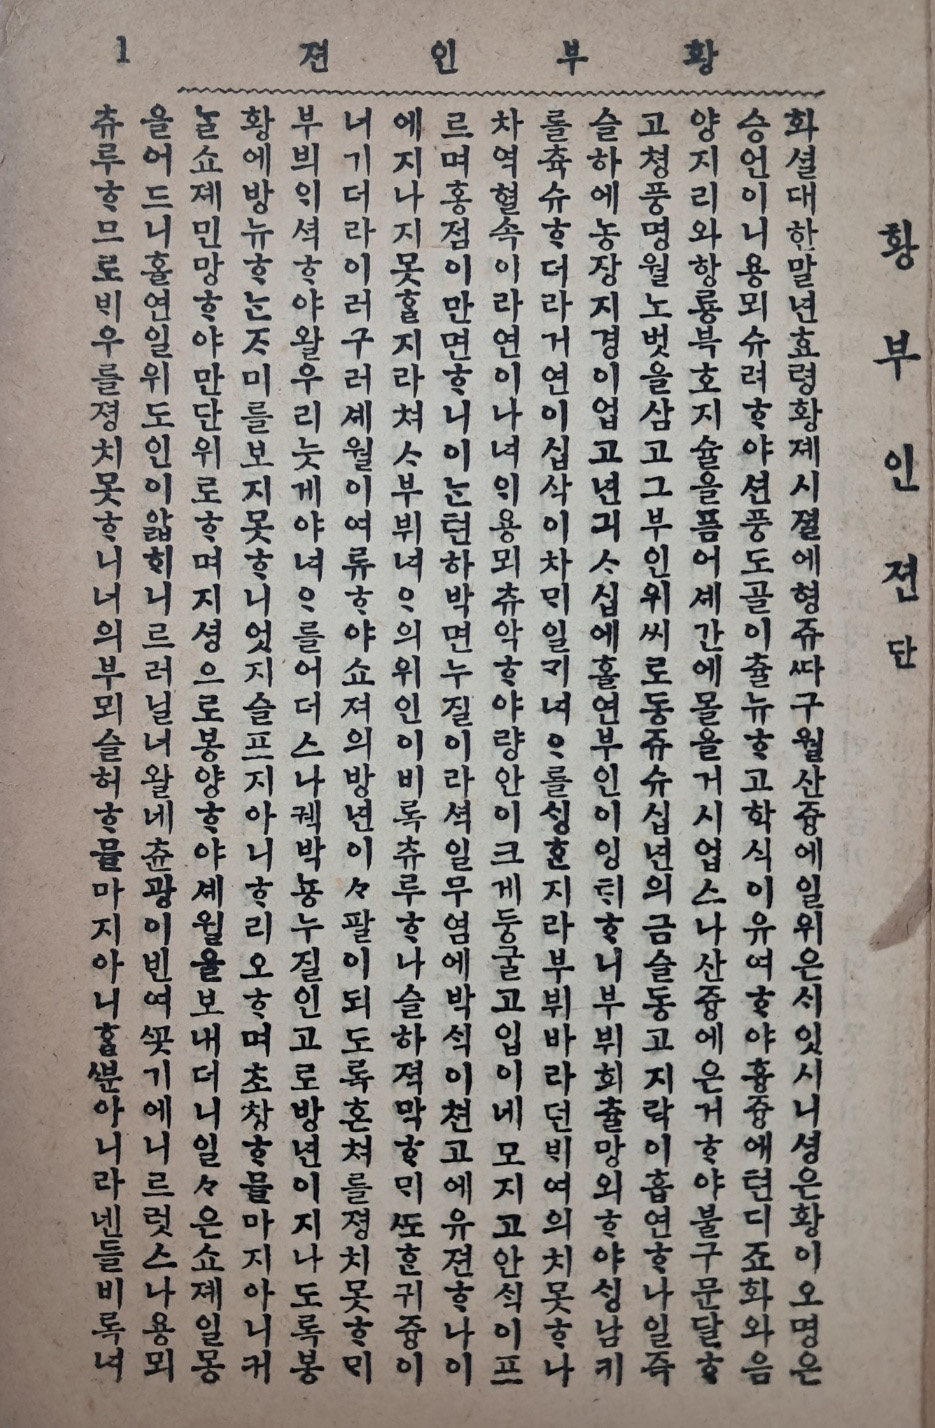 황부인젼
1
황부인젼단
화셜대한말년효령황졔시졀에형쥬ᄯᅡ구월산즁에일위은ᄉᆡ잇시니셩은황이오명은
승언이니용뫼슈려ᄒᆞ야션풍도골이츌뉴ᄒᆞ고학식이유여ᄒᆞ야흉즁애텬디죠화와음
양지리와항룡북호지슐을픔어셰간에몰을거시업스나산즁에은거ᄒᆞ야불구문달ᄒᆞ
고쳥풍명월노벗을삼고그부인위씨로동쥬슈십년의금슬동고지락이흡연ᄒᆞ나일즉
슬하에농장지경이업고년긔ᄉᆞ십에홀연부인이잉ᄐᆡᄒᆞ니부뷔희츌망외ᄒᆞ야ᄉᆡᆼ남키
를츅슈ᄒᆞ더라거연이십삭이차ᄆᆡ일ᄀᆡ녀ᄋᆞ를ᄉᆡᆼᄒᆞᆫ지라부뷔바라던ᄇᆡ여의치못ᄒᆞ나
차역혈속이라연이나녀ᄋᆡ용뫼츄악ᄒᆞ야량안이크게둥굴고입이네모지고안ᄉᆡᆨ이프
르며홍점이만면ᄒᆞ니이ᄂᆞᆫ텬하박면누질이라셕일무염에박ᄉᆡᆨ이쳔고에유젼ᄒᆞ나이
에지나지못ᄒᆞᆯ지라쳐ᄉᆞ부뷔녀ᄋᆞ의위인이비록츄루ᄒᆞ나슬하젹막ᄒᆞᄆᆡᄯᅩᄒᆞᆫ귀즁이
너기더라이러구러셰월이여류ᄒᆞ야쇼져의방년이々팔이되도록혼쳐를졍치못ᄒᆞᄆᆡ
부븨ᄋᆡ셕ᄒᆞ야왈우리늣게야녀ᄋᆞ를어더스나궥박뇽누질인고로방년이지나도록봉
황에방뉴ᄒᆞᄂᆞᆫᄌᆞ미를보지못ᄒᆞ니엇지슬프지아니ᄒᆞ리오ᄒᆞ며초창ᄒᆞᄆᆞᆯ마지아니커
ᄂᆞᆯ쇼졔민망ᄒᆞ야만단위로ᄒᆞ며지셩으로봉양ᄒᆞ야셰월을보내더니일々은쇼졔일몽
을어드니홀연일위도인이앏ᄒᆡ니르러닐너왈네츈광이빈여ᄭᅩᆺ기에니르럿스나용뫼
츄루ᄒᆞ므로ᄇᆡ우를졍치못ᄒᆞ니너의부뫼슬허ᄒᆞᄆᆞᆯ마지아니홈ᄲᅮᆫ아니라넨들비록녀